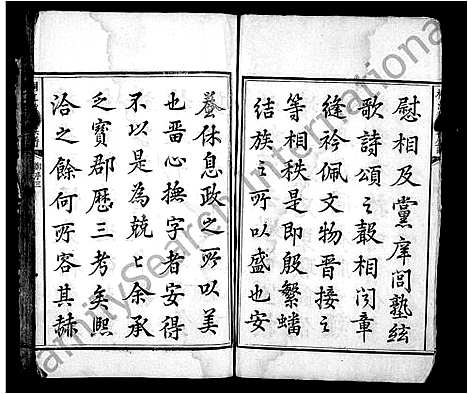 慰相及黨庠閭塾絃
歌詩頌之聲相聞章
縫衿佩文物晉接之
等相秩是即殷繁蟠
結族之所以盛也安
養休息政之所以美
也晉心撫字者安得
不以是為兢兢余承
乏寶郡歷三考矣熙
洽之餘何所容其赫
FamilySearch International